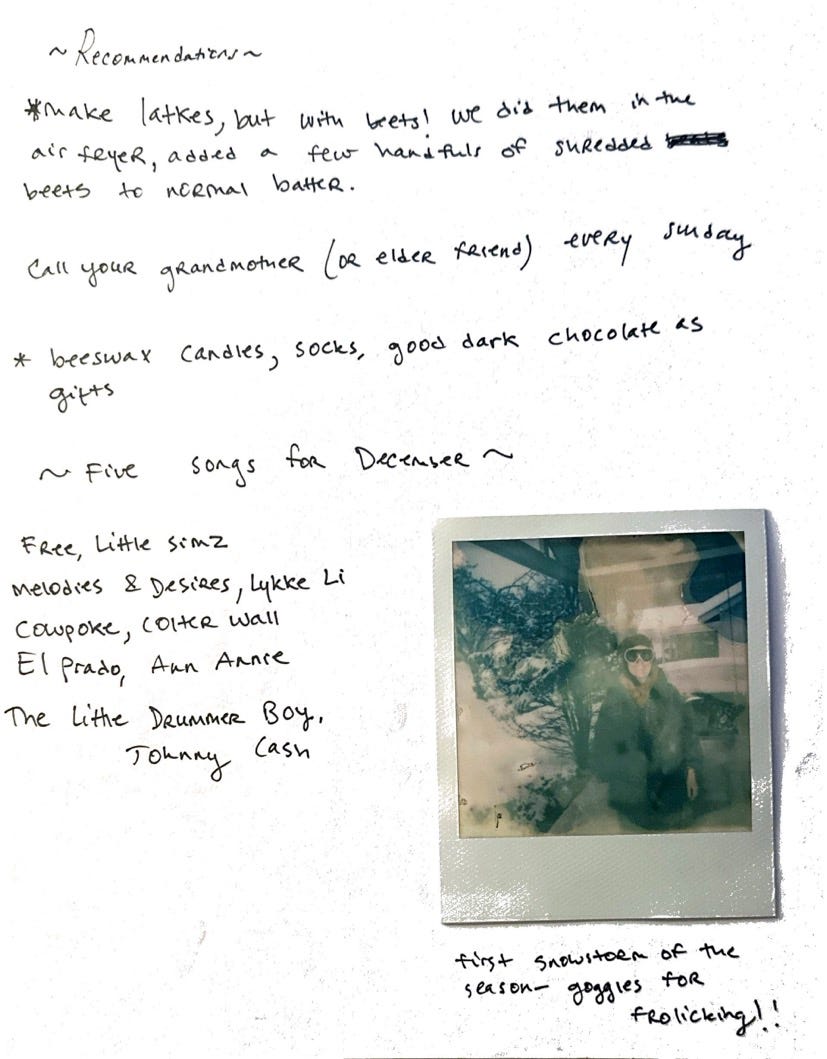 ~ Recommendations ~
*make latkes, but with beets! we did them in the
air fryer, added a few handfuls of shredded
beets to normal batter.
Call your grandmother (or elder friend) every sunday
* beeswax candles, socks, good dark chocolate as
gifts
~ Five songs for December ~
Free, Little Simz
Melodies & Desires, Lykke Li
Cowpoke, Colter Wall
El Prado, Ann Annie
The Little Drummer Boy,
Johnny Cash
first snowstorm of the
season- goggles for
frolicking!!